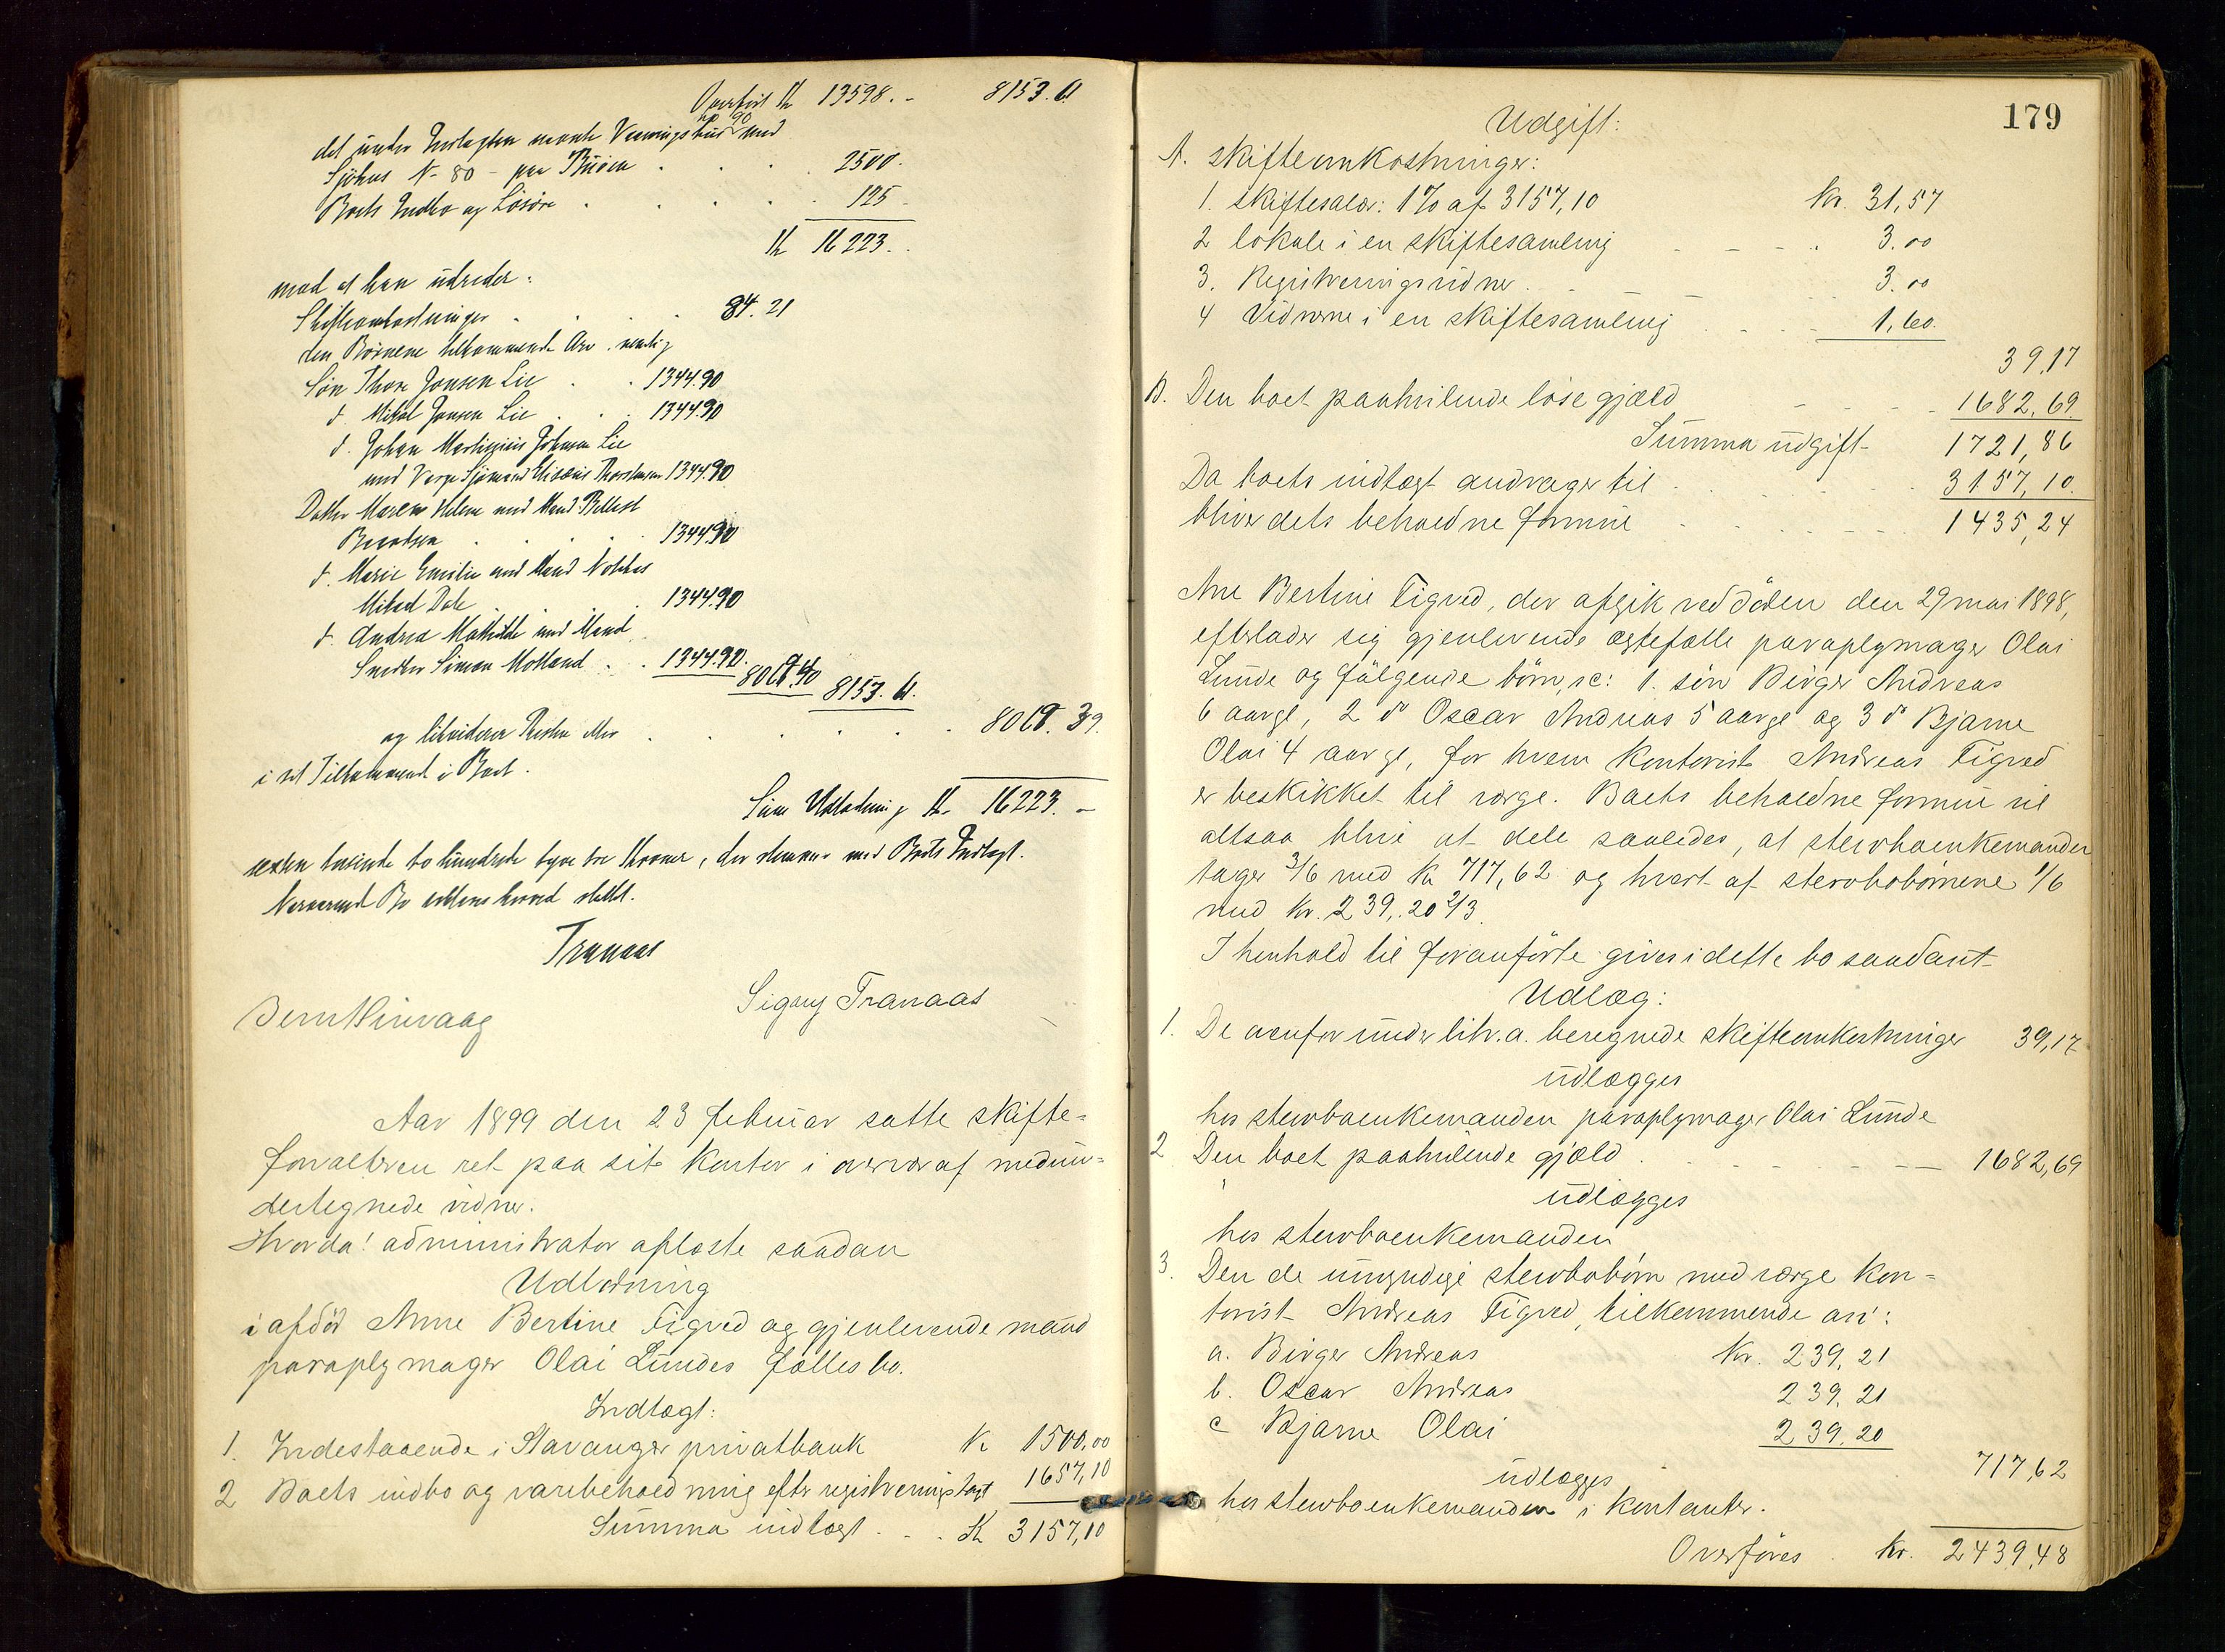 Overført Kr 13598.- 8153.61
det under Indtægten nævnte Vaaningshus med
Sjöhus N- 80 - paa Buöen . . . 2500.
Boets Indbo og Lösöre . . . . . 125.
Kr 16223.
mod at han udreder:
Skifteomkostninger . . . . 84.21
den Börnene tilkommende Arv. nemlig
Sön Thore Jonsen Lie . . 1344.90
d. Mikal Jonsen Lie . . . 1344.90
d. Johan Martinius Johnsen Lie
med Verge Sjömand Thorstensen 1344.90
Datter Maren Helene med Mand
Berentsen . . . . . 1344.90
d. Marie Emilie med Mand
Mikal Dale . . . 1344.90
d. Andrea Mathilde med Mand
Snedker Simon Motland . . 1344.90. 8069.40 8153.61.
og likviderer Resten eller . . . . . . 8069.39.
i sit Tilkommende i Boet.
Sum Udlodning Kr. 16223.-
sexten tusinde to hundrede tyve tre Kroner, der stemmer med Boets Indtægt.
Nærværende Bo erklæres herved sluttet.
Tranaas
Signy Tranaas
Aar 1899 den 23 februar satte skifte=
forvalteren ret paa sit kontor i overvær af medun=
dertegnede vidner.
Hvorda! administrator aflæste saadan
Udlodning
i afdöd Anne Bertine Tigved og gjenlevende mand
paraplymager Olai Lundes fælles bo.
Indtægt:
1. Indestaaende i Stavanger privatbank Kr 1500,00
2 Boets indbo og varebeholdning efter registreringstaxt 1657,10
Summa indtægt . . . Kr 3157,10
179
Udgift:
A. skifteomkostninger:
1. skiftesalær: 1% af 3157,10 Kr. 31,57
2 lokale i en skiftesamling - - - . 3.00
3. Registreringsvidner . - - - .. 3.00
4 Vidnerne i en skiftesamling . . . . 1,60.
39,17
B. Den boet paahvilende löse gjæld - - - - 1682,69
Summa udgift- 1721,86
Da boets indtægt andrager til . . . . . 3157,10.
bliver dets beholdne formue . . . . 1435,24
Ane Bertine Tigved, der afgik ved döden den 29 mai 1898,
efterlader sig gjenlevende ægtefælle paraplymager Olai
Lunde og fölgende börn, sc: 1. sön Birger Andreas
6 aar gl, 2 do Oscar Andreas 5 aar gl og 3 do Bjarne
Olai 4 aar gl, for hvem kontorist Andreas Tigved
er beskikket til værge. Boets beholdne formue vil
altsaa blive at dele saaledes, at stervboenkemanden
tager 3/6 med Kr 717,62 og hvert af stervbobörnene 1/6
med Kr. 239,20 2/3.
I henhold til foranförte gives i dette bo saadant
Udlæg:
1. De ovenfor under litr. a. beregnede skifteomkostninger 39,17
udlægges
hos stervboenkemanden paraplymager Olai Lunde
2 Den boet paahvilende gjæld . - - - - 1682,69
udlægges
hos stervboenkemanden
3. Den de umyndige stervbobörn med værge kon=
torist Andreas Tigved, tilkommende arv:
a. Birger Andreas Kr. 239,21
b. Oscar Andreas 239,21
c Bjarne Olai 239,20
717,62
udlægges
hos stervboenkemanden i kontanter.
Overföres . Kr. 2439,48